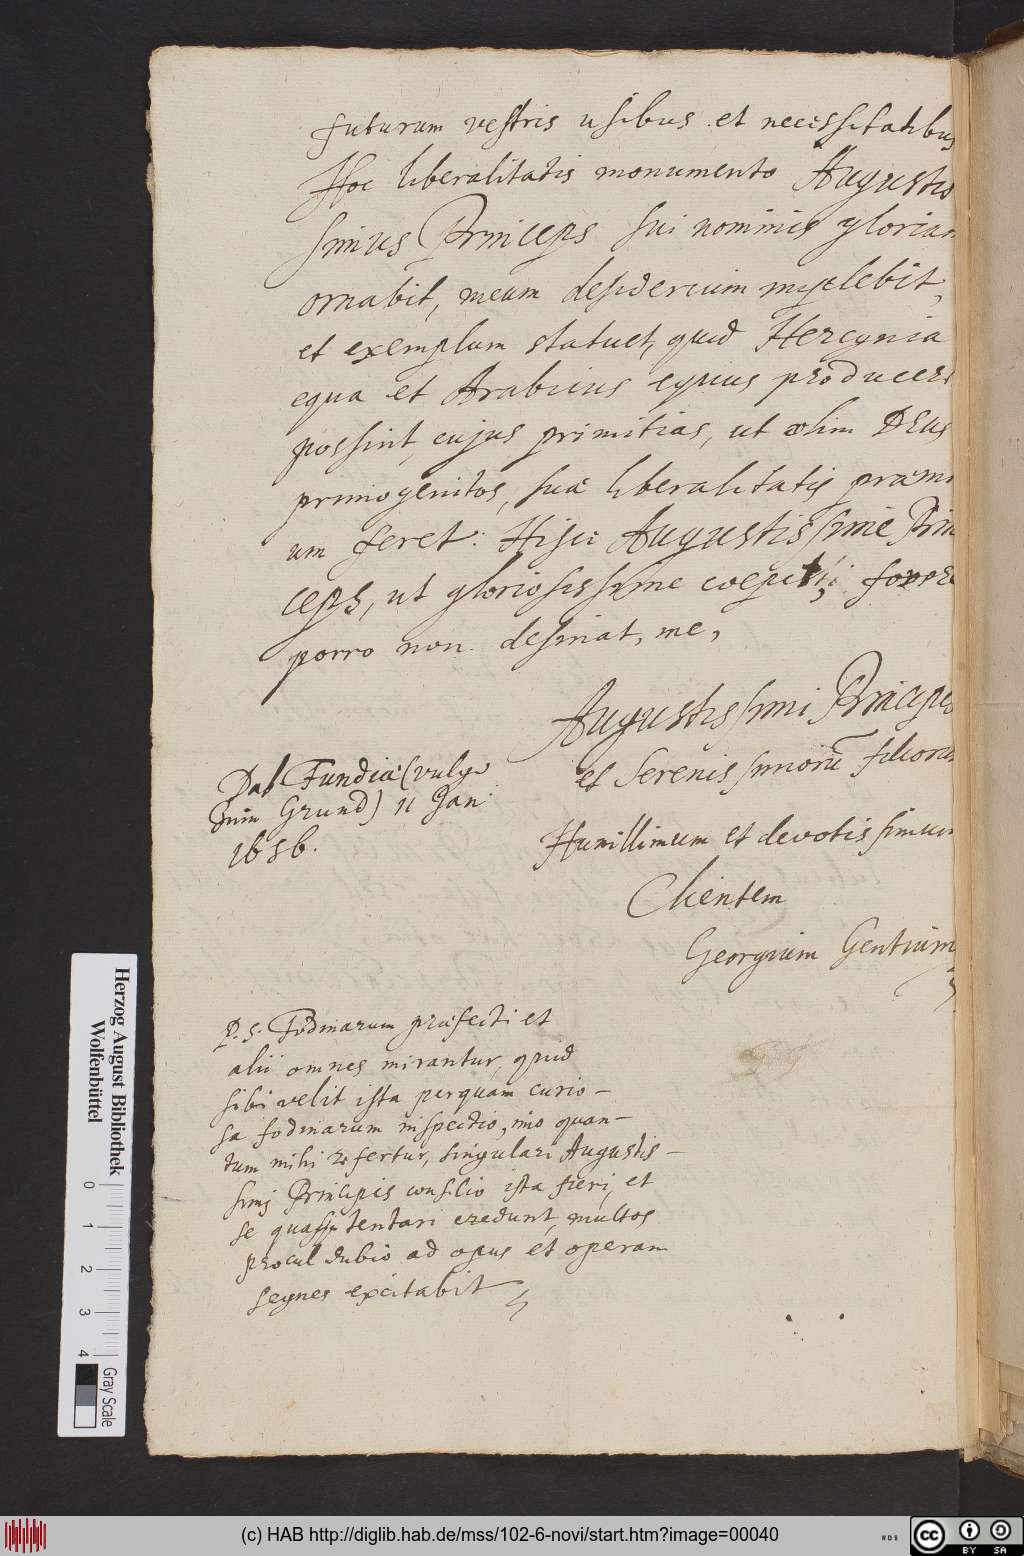 futuram vestris usibus et necessitatibus
Hoc liberalitatis monumento Augustis
simus Princeps sui nominis gloriam
ornabit, meum desiderium implebit,
et exemplum statuet, quid Hercynia
equa et Arabicus equus producere
possint, cujus primitias, ut olim DEus
primogenitos, suae liberalitatis praemi
um feret: Augustissime Prin
ceps, ut gloriosissime coepisti, fovere
porro non desinat, me,
Augustissimi Principis
et Serenissimorū filiorum
Dab. Fundiae (vulgo
Grund) 11 Jan:
1656.
Humillimum et devotissimum
Clientem
Georgium Gentium
P. S. Fodinarum praefecti et
alii omnes mirantur, quid
sibi velit ista perquam curio-
sa fodinarum inspectio, imo quan-
tum mihi refertur, singulari Augustis-
simj Principis consilio ista fieri, et
se quasi tentari credunt, multos
procul dubio ad opus et operam
segnes excitabit
Herzog August Bibliothek
Wolfenbüttel
0 1 2 3 4
Gray Scale
(c) HAB http://diglib.hab.de/mss/102-6-novi/start.htm?image=00040
WDB
cc BY SA